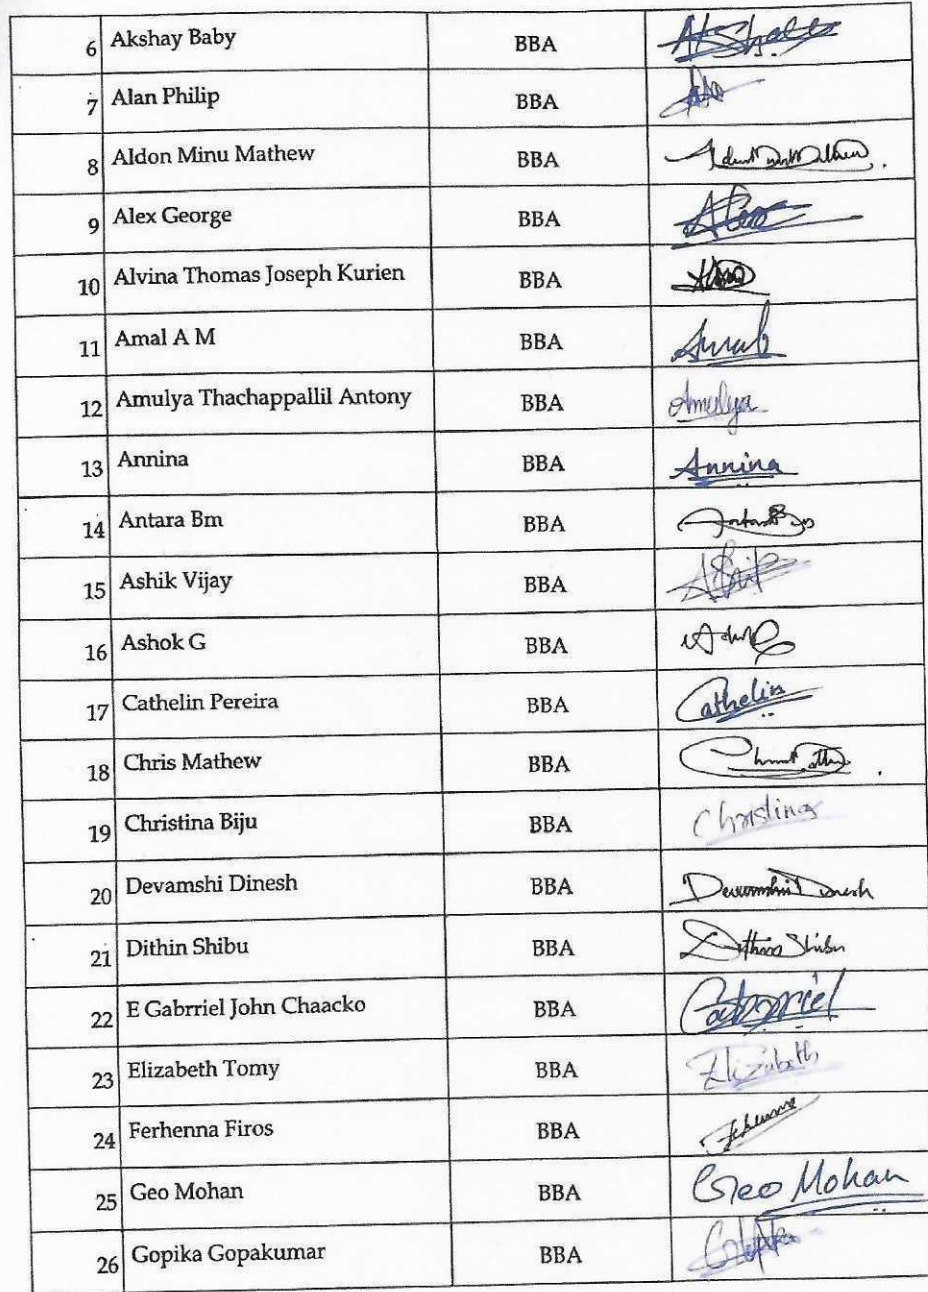 6 Akshay Baby BBA Akshay
7 Alan Philip BBA
8 Aldon Minu Mathew BBA
9 Alex George BBA Alex
10 Alvina Thomas Joseph Kurien BBA
11 Amal A M BBA Amal
12 Amulya Thachappallil Antony BBA Amulya
13 Annina BBA Annina
14 Antara Bm BBA
15 Ashik Vijay BBA Ashik
16 Ashok G BBA
17 Cathelin Pereira BBA Cathelin
18 Chris Mathew BBA
19 Christina Biju BBA Christina
20 Devamshi Dinesh BBA Devamshi Dinesh
21 Dithin Shibu BBA Dithin Shibu
22 E Gabrriel John Chaacko BBA Gabrriel
23 Elizabeth Tomy BBA Elizabeth
24 Ferhenna Firos BBA
25 Geo Mohan BBA Geo Mohan
26 Gopika Gopakumar BBA